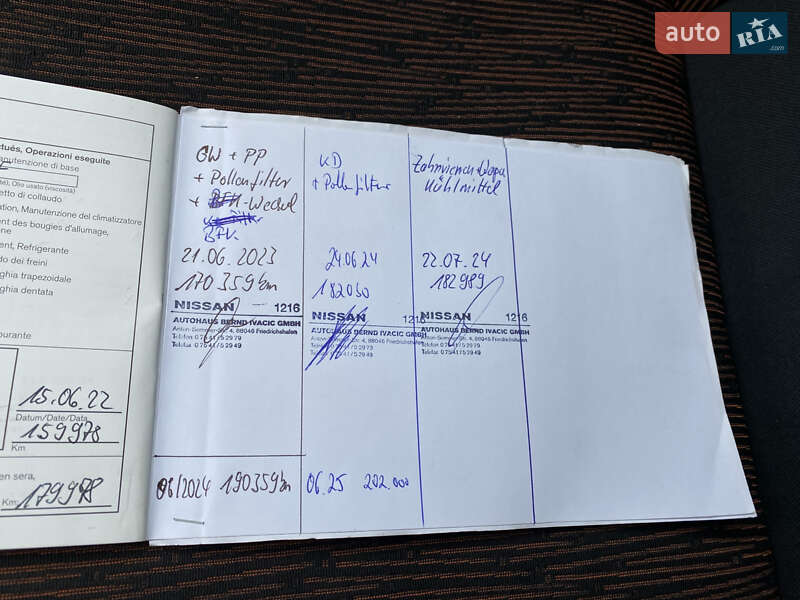 auto RIA
.com
tués, Operazioni eseguite
anutenzione di base
Olio usato (viscosità)
etto di collaudo
ation, Manutenzione del climatizzatore
ent des bougies d'allumage,
ne
ent, Refrigerante
do dei freini
ghia trapezoidale
ghia dentata
urante
15.06.22
Datum/Date/Data
159978
Km
en sera,
Km: 179978
GW + PP
+ Pollenfilter
+ -Wechsel
BFK.
21.06.2023
170359 km
NISSAN 1216
AUTOHAUS BERND IVACIC GMBH
Anton-Sommer-Str. 4, 88046 Friedrichshafen
Telefon 0 75 41 / 5 29 79
Telefax 0 75 41 / 5 29 49
06/2024 190359 km
KD
+ Pollenfilter
24.06.24
182050
NISSAN 1216
AUTOHAUS BERND IVACIC GMBH
Anton-Sommer-Str. 4, 88046 Friedrichshafen
Telefon 0 75 41 / 5 29 79
Telefax 0 75 41 / 5 29 49
06.25 202.000
Zahnriemen + Wapu
Kühlmittel
22.07.24
182989
NISSAN 1216
AUTOHAUS BERND IVACIC GMBH
Anton-Sommer-Str. 4, 88046 Friedrichshafen
Telefon 0 75 41 / 5 29 79
Telefax 0 75 41 / 5 29 49